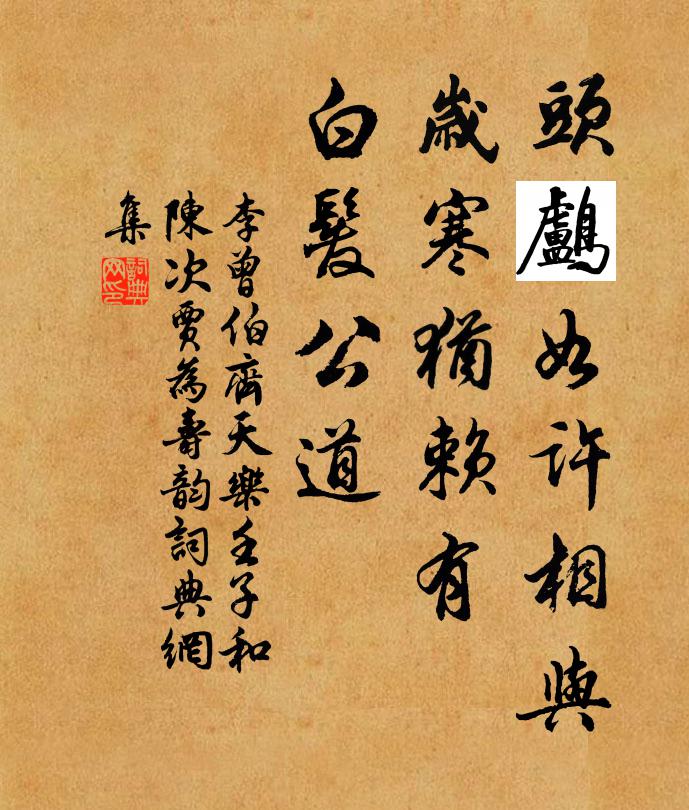 頭鸕如許相與
歲寒猶賴有
白髮公道
李曾伯齊天樂壬子和
陳次賈為壽韵詞典網
集
詞典网印